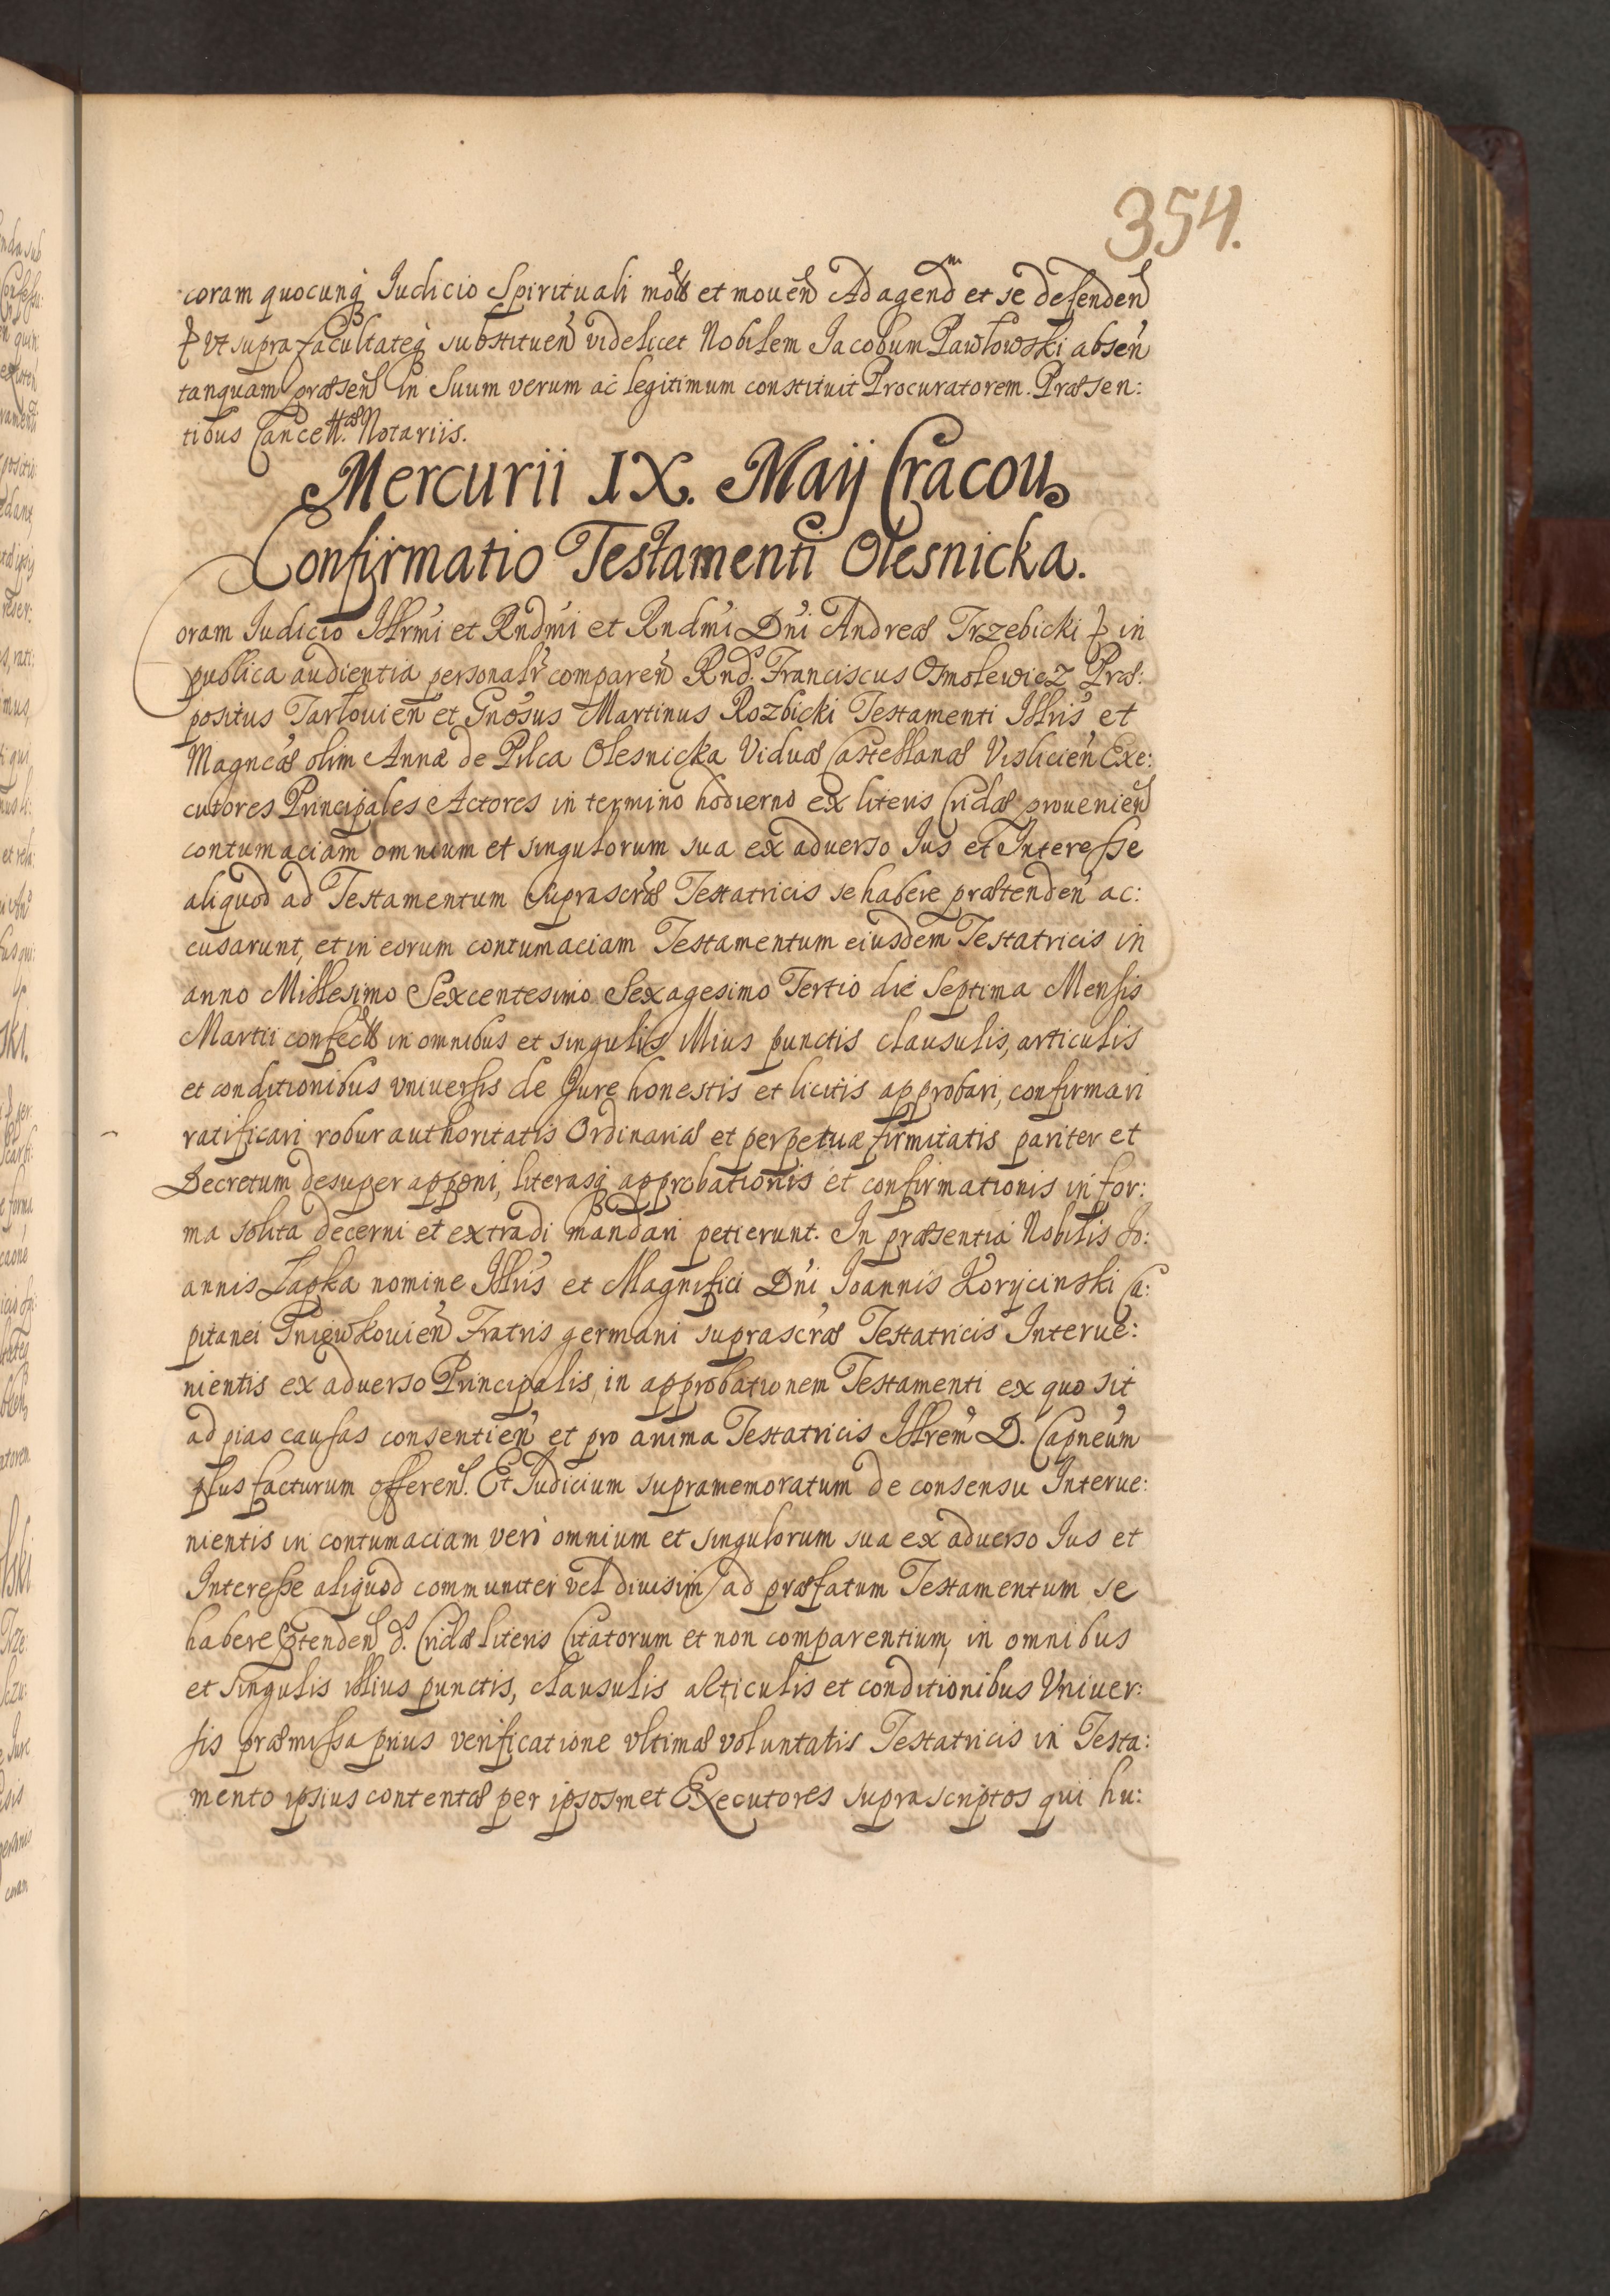 354.
coram quocunq Judicio Spirituali mot et mouen Ad agend et se defenden
Ut supra facultateq substituen videlicet Nobilem Jacobum Pawłowski absen
tanquam præsen in Suum verum ac legitimum constituit Procuratorem. Præsen:
tibus Cancell. Notariis.
Mercurii IX. Maij Cracou
Confirmatio Testamenti Olesnicka.
Coram Judicio Illrmi et Rndmi et Rndmi Dni Andreæ Trzebicki in
publica audientia personalr comparen Rnd. Franciscus Osmolewicz Præ:
positus Tarłouien et Gnosus Martinus Rozbicki Testamenti Illris et
Magncæ olim Annæ de Pilca Olesnicka Viduæ Castellanæ Vislicien Exe:
cutores Principales Actores in termino hodierno ex literis Cridæ prouenien
contumaciam omnium et singulorum sua ex aduerso Jus et Interesse
aliquod ad Testamentum suprascræ Testatricis se habere prætenden ac:
cusarunt, et in eorum contumaciam Testamentum eiusdem Testatricis in
anno Millesimo Sexcentesimo Sexagesimo Tertio die Septima Mensis
Martii confect in omnibus et singulis illius punctis clausulis, articulis
et conditionibus vniuersis de Jure honestis et licitis approbari, confirmari
ratificari robur authoritatis Ordinariæ et perpetuæ firmitatis pariter et
Decretum desuper apponi, literasq approbationis et confirmationis in for:
ma solita decerni et extradi mandari petierunt. In præsentia Nobilis Jo:
annis Łapka nomine Illris et Magnifici Dni Joannis Korycinski Ca:
pitanei Gniewkouien Fratris germani suprascræ Testatricis Interue:
nientis ex aduerso Principalis, in approbationem Testamenti ex quo sit
ad pias causas consentien et pro anima Testatricis Illrem D. Capneum
plus facturum offeren. Et Judicium supramemoratum de consensu Interue:
nientis in contumaciam vero omnium et singulorum sua ex aduerso Jus et
Interesse aliquod communiter vel diuisim ad præfatum Testamentum se
habere ptenden d. Cridæ literis Citatorum et non comparentium, in omnibus
et singulis illius punctis, clausulis alticulis et conditionibus Vniuer:
sis præmissa prius verificatione vltimæ voluntatis Testatricis in Testa:
mento ipsius contentæ per ipsosmet Executores suprascriptos qui hu: